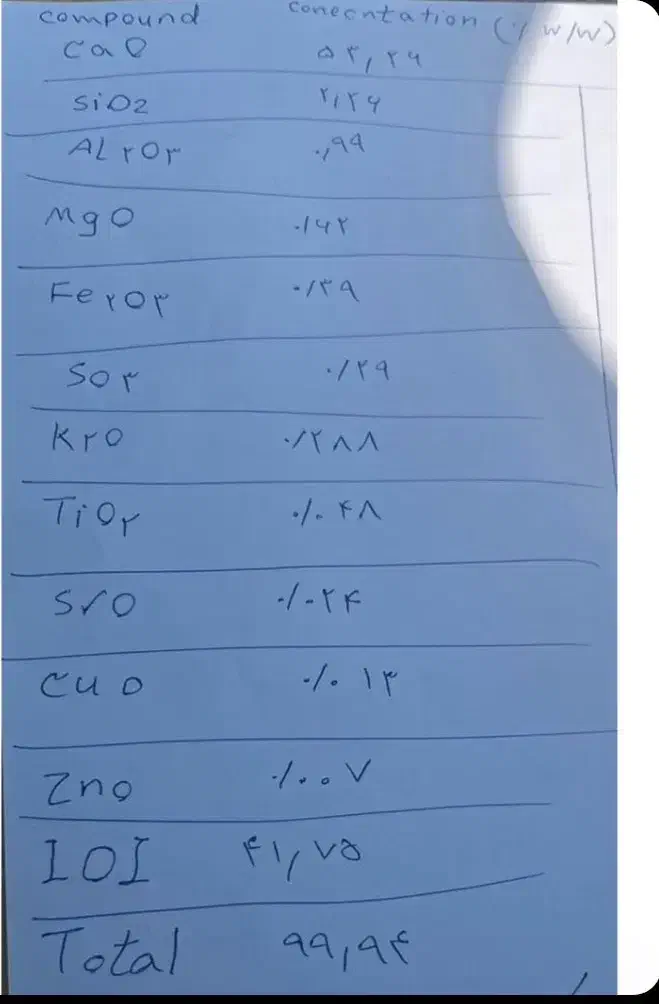 compound conecntation (% w/w)
CaO ۵۳,۲۶
SiO2 ۲,۲۶
AL۲O۳ ۰,۹۹
MgO ۰/۶۲
Fe۲O۳ ۰/۳۹
SO۳ ۰/۲۹
K۲O ۰/۲۸۸
TiO۲ ۰/۰۴۸
SrO ۰/۰۲۴
CuO ۰/۰۱۳
ZnO ۰/۰۰۷
IOI ۴۱,۷۵
Total ۹۹,۹۴